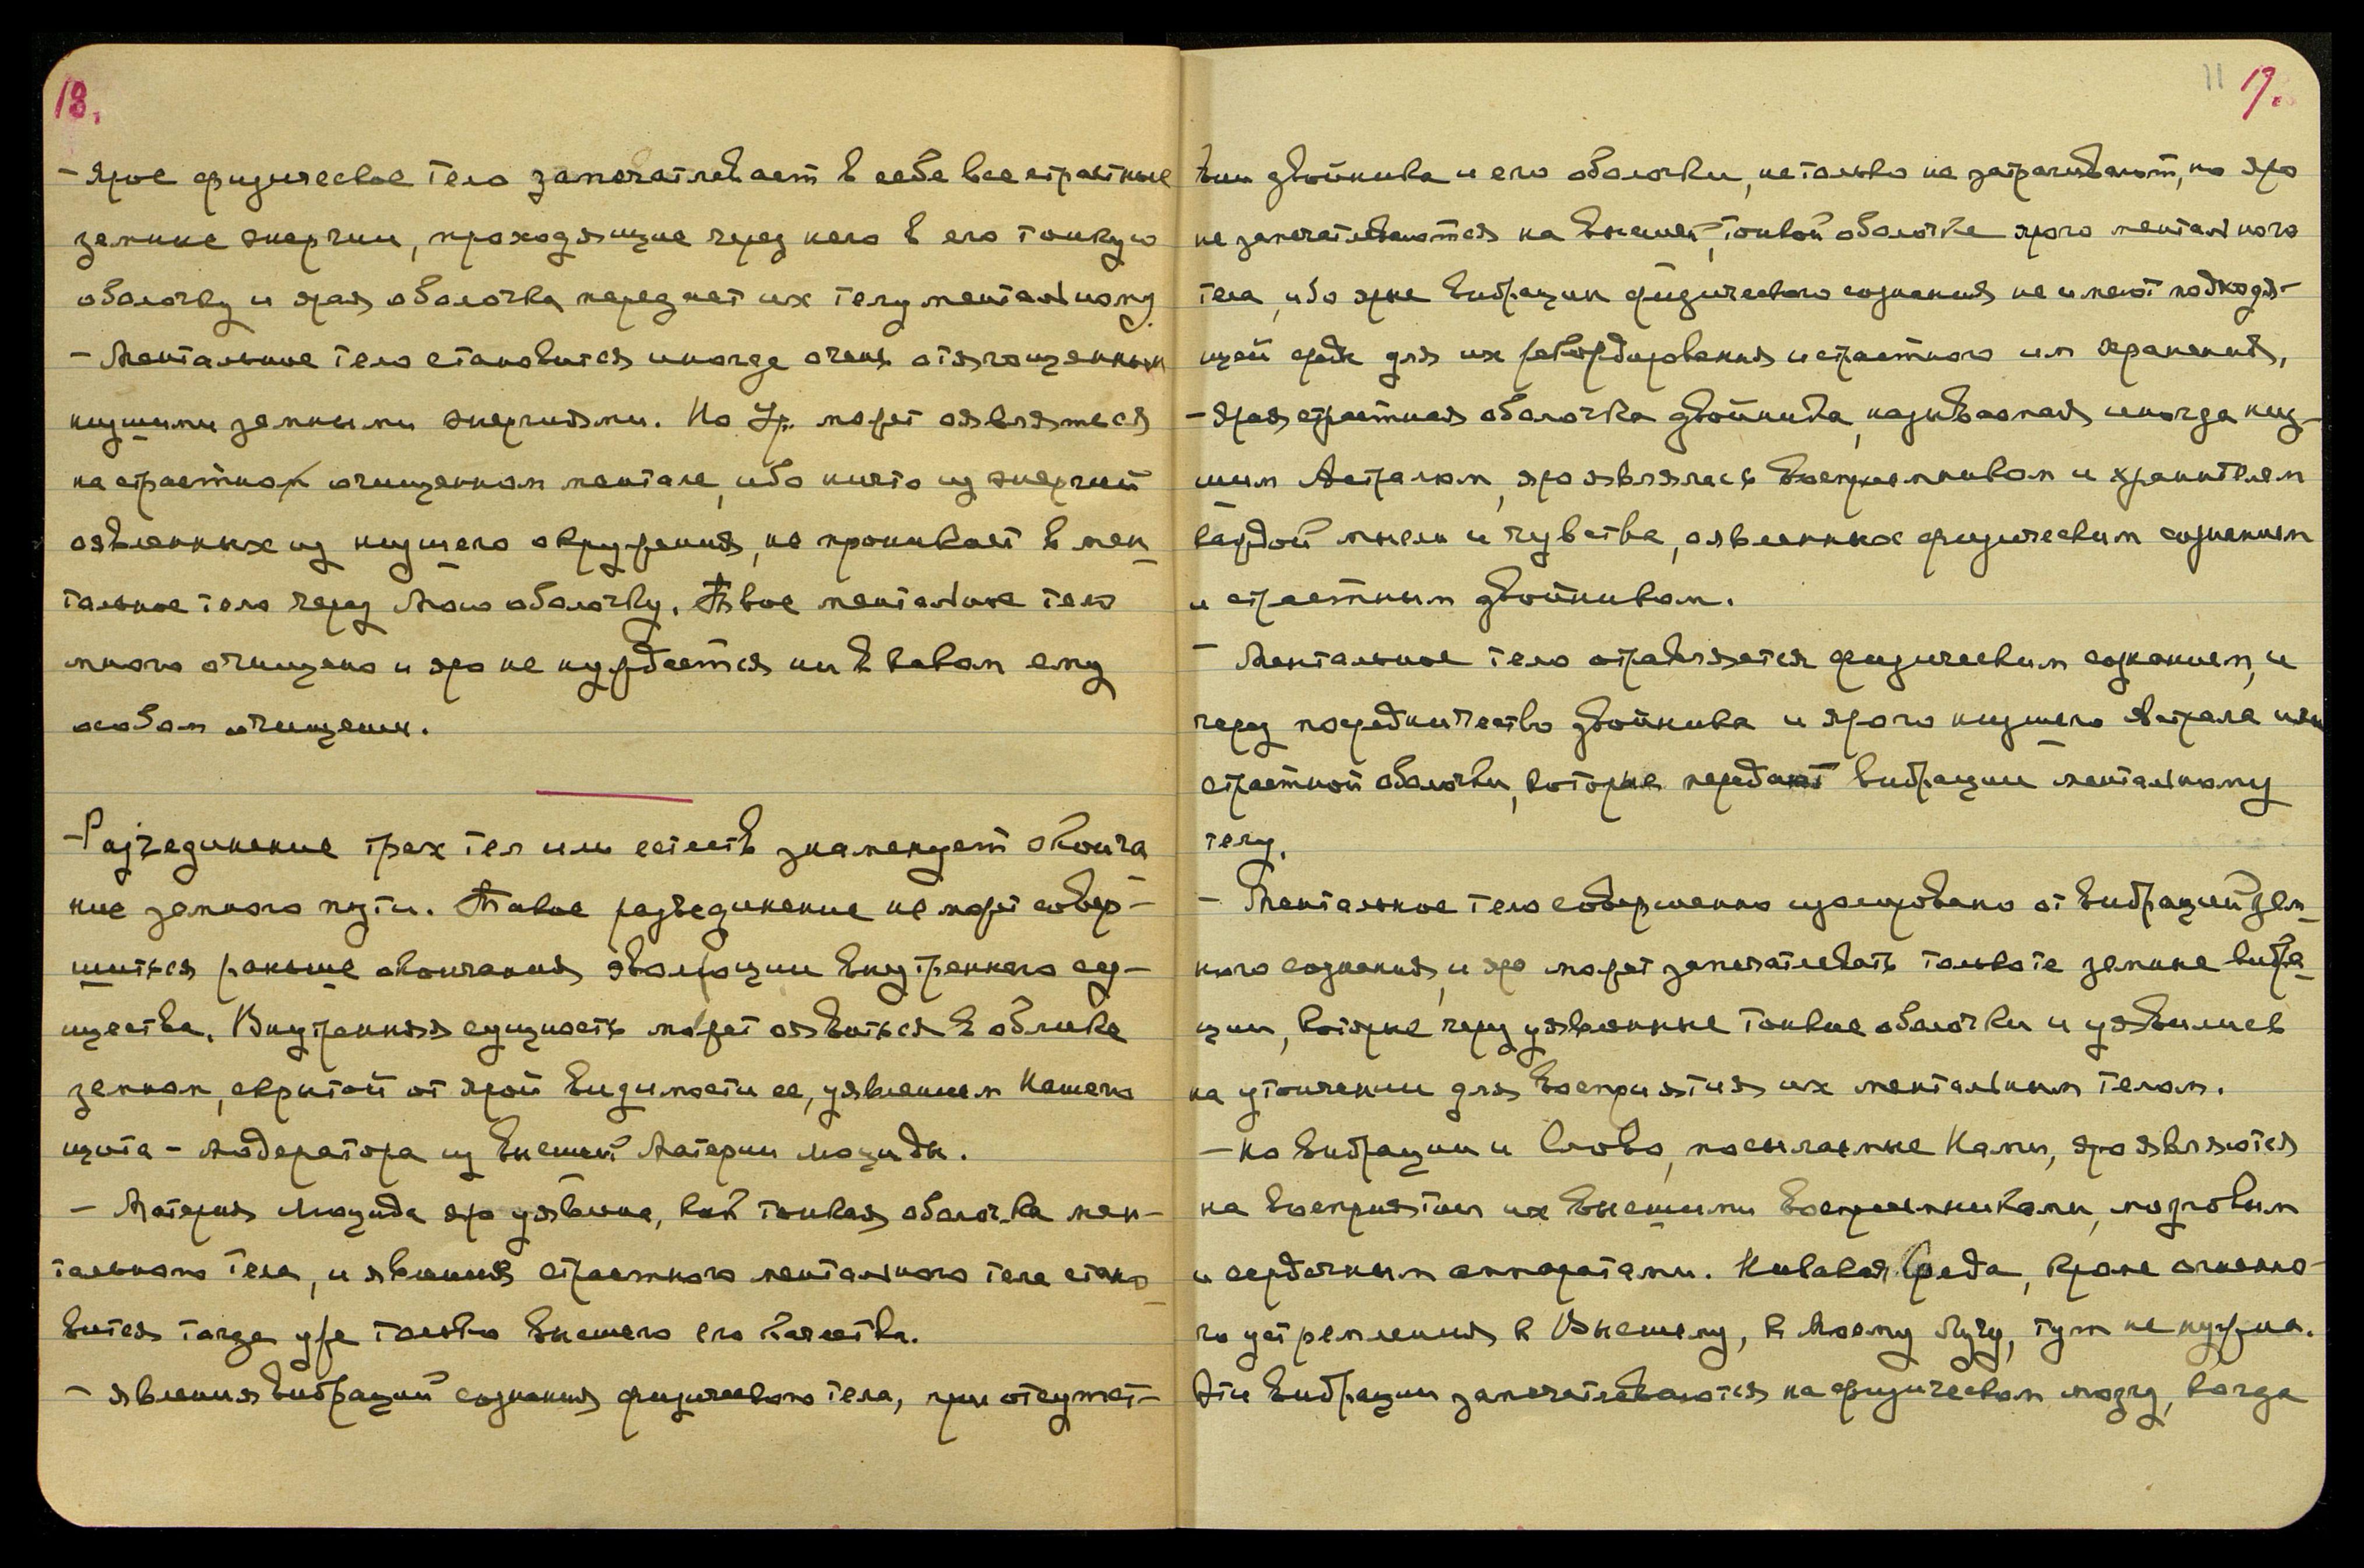 18.
– Ярое физическое тело запечатлевает в себе все страстные
земные энергии, проходящие через него в его тонкую
оболочку и ярая оболочка передает их телу ментальному.
– Ментальное тело становится иногда очень отягощенным
низшими земными энергиями. Но Ур. может оявляться
на страстном очищенном ментале, ибо ничто из энергий
оявленных из низшего окружения, не проникает в мен-
тальное тело через Мою оболочку. Твое ментальное тело
много очищено и яро не нуждается ни в каком ему
особом очищении.
– Разъединение трех тел или естеств знаменует оконча-
ние земного пути. Такое разъединение не может совер-
шиться раньше окончания эволюции внутреннего су-
щества. Внутренняя сущность может оявиться в облике
земном, скрытой от ярой видимости ее, уявлением Нашего
щита – модератора из высшей Материи Люциды.
– Материя Люцида яро уявлена, как тонкая оболочка мен-
тального тела, и явления страстного ментального тела стано-
вится тогда уже только высшего его качества.
– явления вибраций сознания физического тела, при отсутст-
11 19.
вии двойника и его оболочки, не только не затрагивают, но яро
не запечатлеваются на высшей, тонкой оболочке ярого ментального
тела, ибо ярые вибрации физического сознания не имеют подходя-
щей среды для их рекордирования и страстного им хранения,
– ярая страстная оболочка двойника, называемая иногда низ-
шим Астралом, яро являлась восприемником и хранителем
каждой мысли и чувства, оявленных физическим сознанием
и страстным двойником.
– Ментальное тело отравляется физическим сознанием, и
через посредничество двойника и ярого низшего Астрала или
страстной оболочки, которые передают вибрации ментальному
телу.
– Ментальное тело совершенно изолировано от вибраций зем-
ного сознания, и яро может запечатлевать только те земные вибра-
ции, которые через уявленные тонкие оболочки и уявились
на утончении для восприятия их ментальным телом.
– Но вибрации и Слово, посылаемые Нами, яро являются
на восприятии их высшими восприемниками, мозговым
и сердечным аппаратами. Никакая Среда, кроме огненно-
го устремления к Высшему, к Моему Лучу, тут не нужна.
Эти вибрации запечатлеваются на физическом мозгу, когда